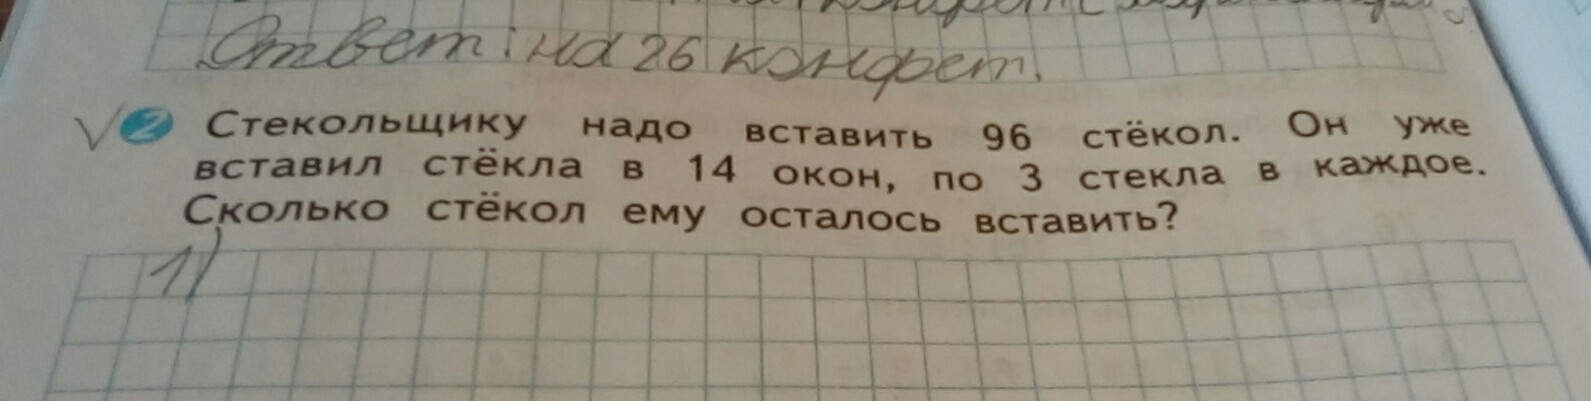 Ответ: на 26 конфет.
2 Стекольщику надо вставить 96 стёкол. Он уже
вставил стёкла в 14 окон, по 3 стекла в каждое.
Сколько стёкол ему осталось вставить?
1)